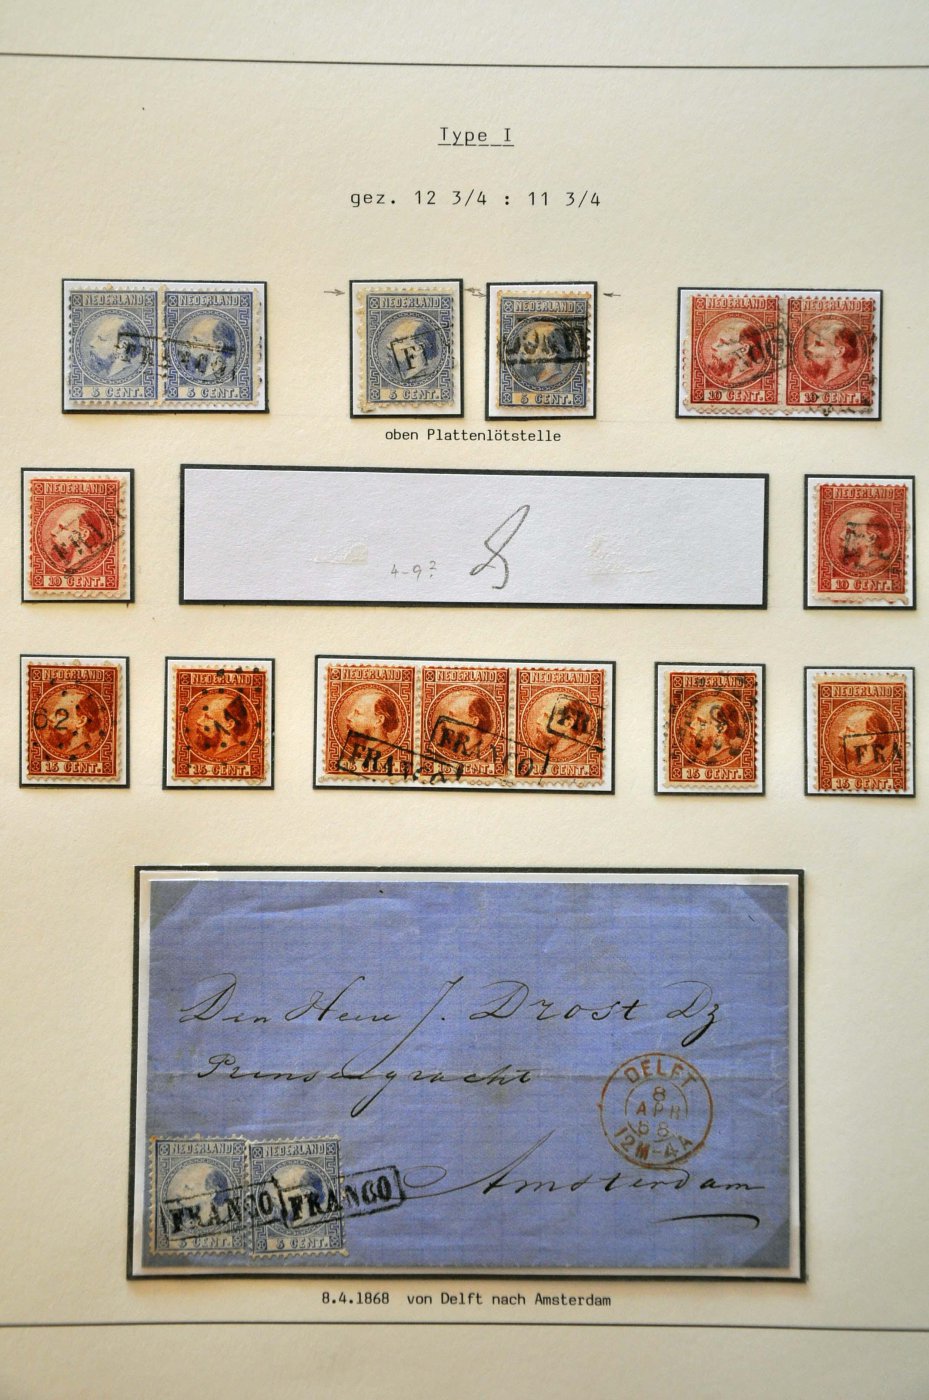 Type I
gez. 12 3/4 : 11 3/4
NEDERLAND NEDERLAND
FRANCO
5 CENT. 5 CENT.
NEDERLAND
5 CENT.
NEDERLAND
5 CENT.
NEDERLAND NEDERLAND
10 CENT. 10 CENT.
oben Plattenlötstelle
NEDERLAND
10 CENT.
4-9?
8
NEDERLAND
10 CENT.
NEDERLAND
62
15 CENT.
NEDERLAND
15 CENT.
NEDERLAND NEDERLAND NEDERLAND
FRANCO FRANCO FRA
15 CENT. 15 CENT. 15 CENT.
NEDERLAND
15 CENT.
NEDERLAND
FRA
15 CENT.
Den Heer J. Drost Dz
Prinsengracht
Amsterdam
DELFT
8
APR
68
12M-4A
NEDERLAND NEDERLAND
FRANCO FRANCO
5 CENT. 5 CENT.
8.4.1868 von Delft nach Amsterdam